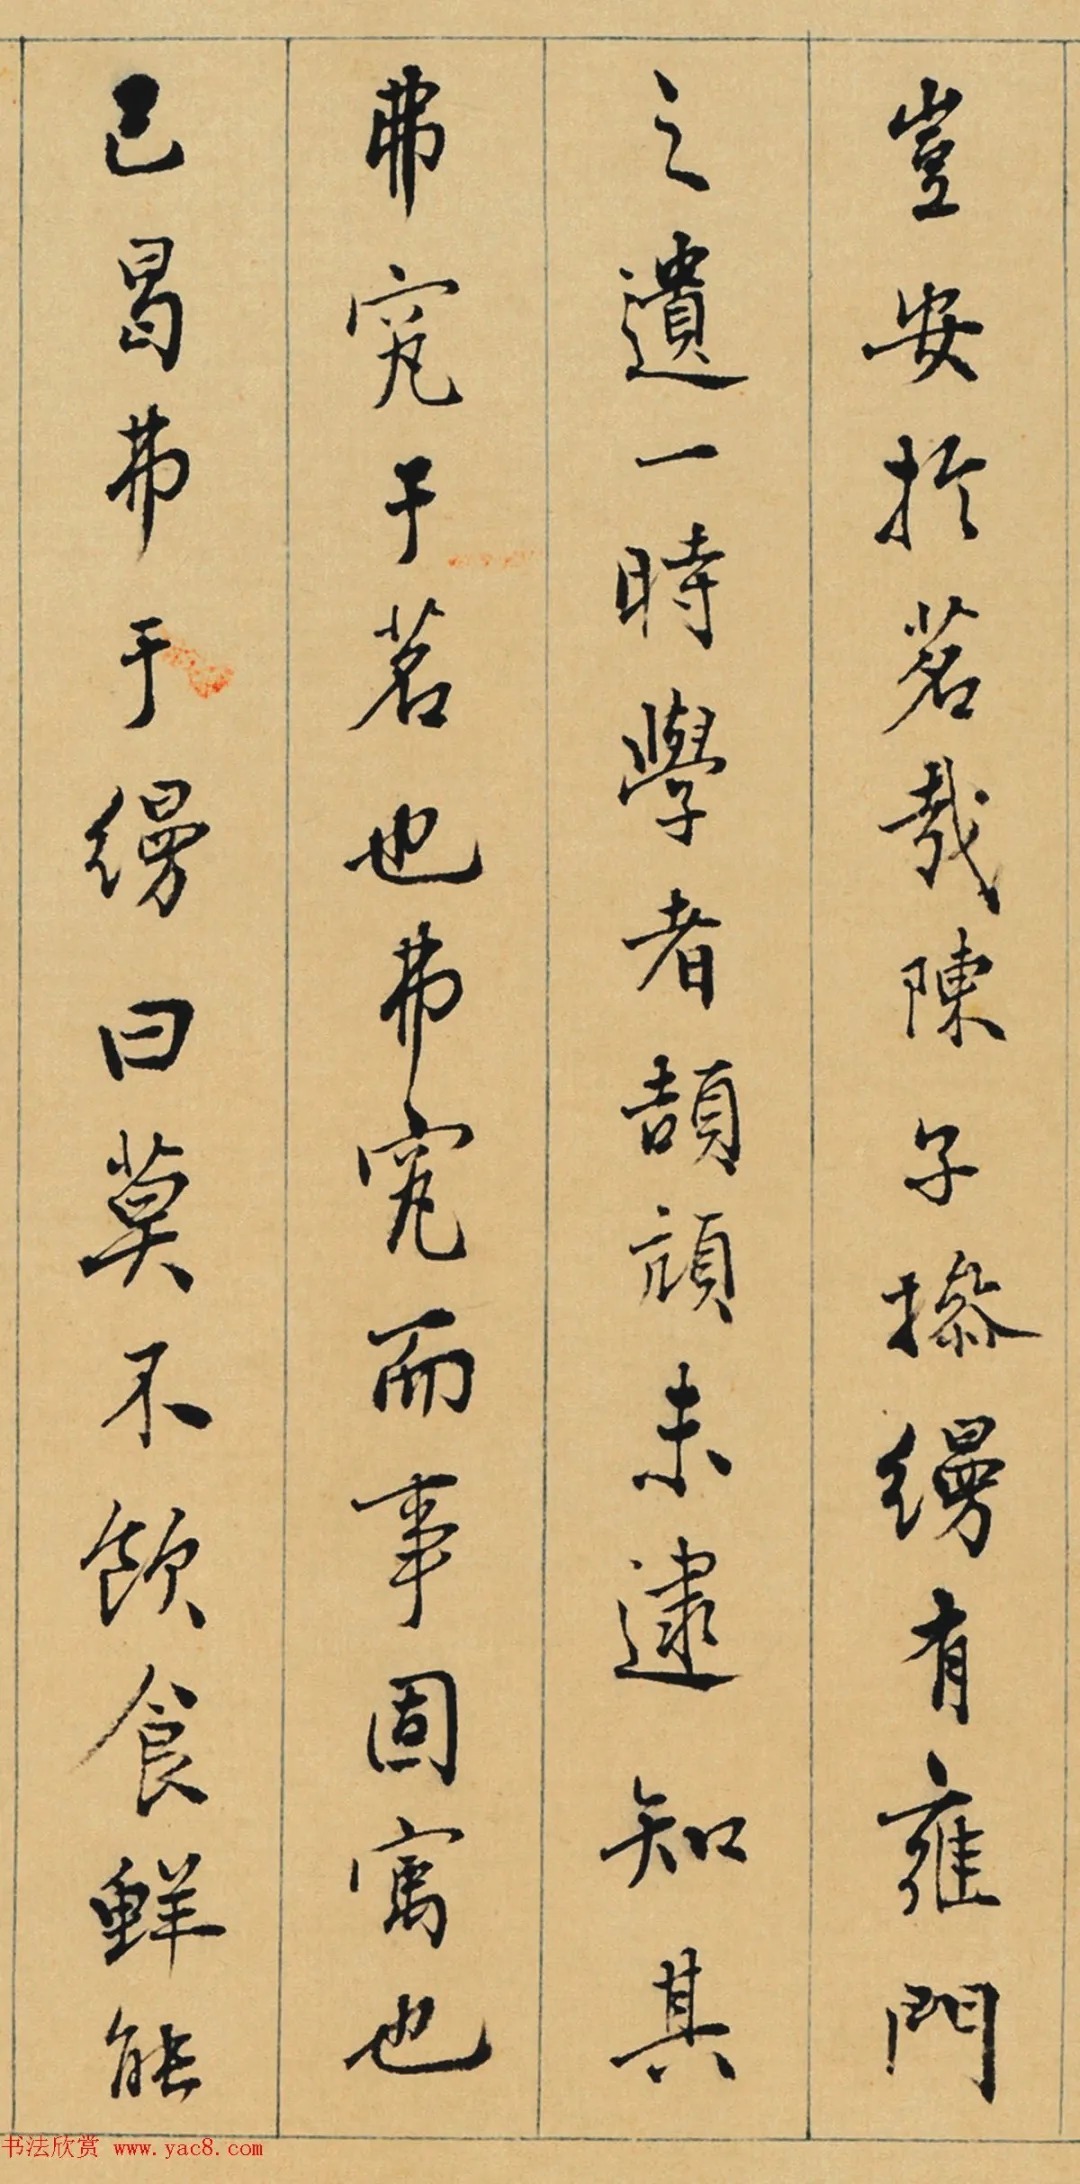 豈安於茗哉陳子操縵有雍門
之遺一時學者頡頏未逮知其
弗究于茗也弗究而事固寓也
已曷弗于縵曰莫不飲食鮮能
书法欣赏 www.yac8.com